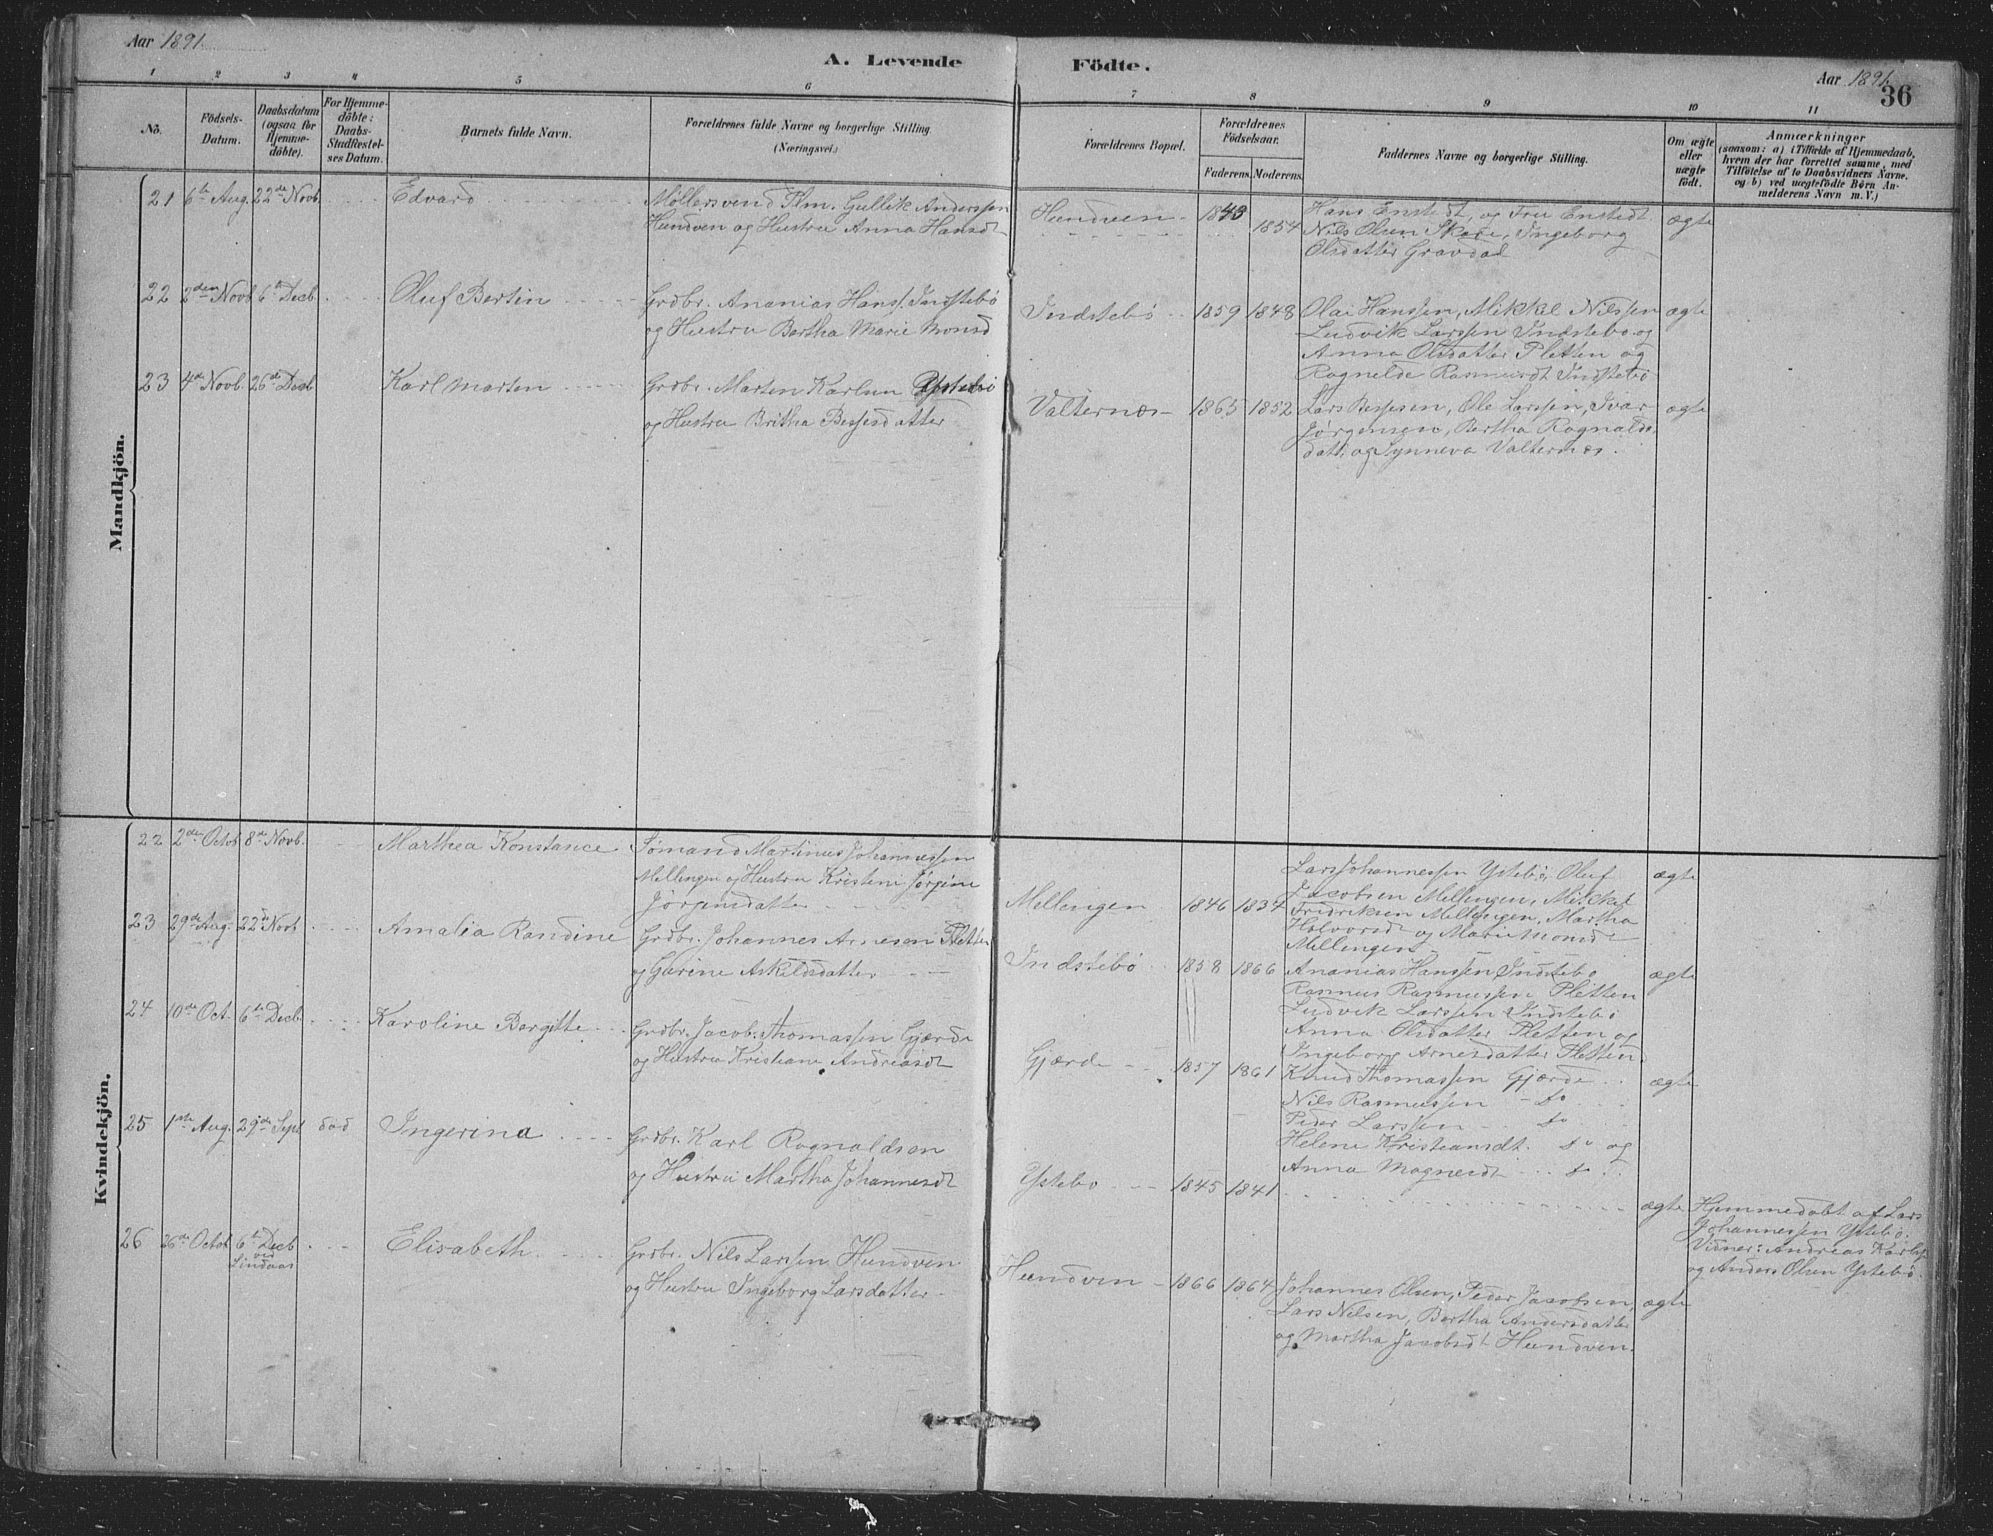 Aar 1891.
A. Levende Födte.
Aar 1891.
36
1 2 3 4 5 6 7 8 9 10 11
No.
Födsels-
Datum.
Daabsdatum
(ogsaa for
Hjemme-
döbte).
For Hjemme-
döbte:
Daabs-
Stadfæstel-
ses Datum.
Barnets fulde Navn.
Forældrenes fulde Navne og borgerlige Stilling
(Næringsvei.)
Forældrenes Bopæl.
Forældrenes
Födselsaar.
Faderens. Moderens.
Faddernes Navne og borgerlige Stilling.
Om ægte
eller
uægte
födt.
Anmærkninger
(saasom: a) i Tilfælde af Hjemmedaab,
hvem der har forrettet samme, med
Tilföielse af to Daabsvidners Navne,
og b) ved uægtefödte Börn An-
melderens Navn m. V.)
Mandkjön.
21 6te Aug. 22de Novb. Edvard
Möllersvend Gullik Anderssen
Hundven og Hustru Anna Hansdt
Hundven 1843 1854
Hans Enstedt, og Fru Enstedt
Nils Olsen Skare, Ingeborg
Olsdatter Gravdal
ægte
22 2den Novb 6te Decb. Oluf Bertin
Grdbr. Ananias Hanss. Indstebö
og Hustru Bertha Marie Monsd
Indstebö 1859 1848
Olai Hanssen, Mikkel Nilssen
Ludvik Larssen Indstebö og
Anna Olsdatter Pletten og
Ragnelde Rasmusdt Indstebö
ægte
23 4de Novb. 26de Decb Karl Marten
Grdbr. Marten Karlsen Ystebö
og Hustru Britha Bessesdatter
Valternæs 1863 1852
Lars Bessesen, Ole Larssen, Ivar
Jørgensen, Bertha Rognalds-
datt. og Synneva Valternæs.
ægte
Kvindekjön.
22 2de Octob 8de Novb. Marthea Konstance
Sømand Martinus Johannessen
Mellingen og Hustru Kristeni Jørgine
Jörgensdatter
Mellingen 1846 1834
Lars Johannessen Ystebö, Oluf
Jacobsen Mellingen, Mikkel
Fredriksen Mellingen, Martha
Halvorsdt og Marie Monsdt
Mellingen
ægte
23 29de Aug. 22de Novb Amalia Randine
Grdbr. Johannes Arnesen Pletten
og Gurine Askildsdatter
Indstebö 1858 1866
Ananias Hanssen Indstebö
Rasmus Rasmussen Pletten
Ludvik Larssen Indstebö
Anna Olsdatter Pletten og
Ingeborg Arnesdatter Pletten.
ægte
24 10de Oct. 6te Decb Karoline Bergitte
Grdbr. Jacob Thomassen Gjærde
og Hustru Kristiane Andreasdt
Gjærde 1857 1861
Knud Thomassen Gjærde
Nils Rasmussen do
Peder Larssen do
Helene Kristeansdt. do og
Anna Magnesdt do
ægte
25 1ste Aug. 29de Sept död Ingerina
Grdbr. Karl Rognaldsen
og Hustru Martha Johannesdt
Ystebö 1845 1841
ægte
Hjemmedöbt af Lars
Johannessen Ystebö.
Vidner: Andreas Karls.
og Anders Olsen Ystebö.
26 26de Octob 6te Decb
ved
Lindaas
Elisabeth
Grdbr. Nils Larssen Hundven
og Hustru Ingeborg Larsdatter
Hundven 1866 1864
Johannes Olsen, Peder Jacobsen,
Lars Nilsen, Bertha Andersdatter
og Martha Jacobsdt Hundven.
ægte